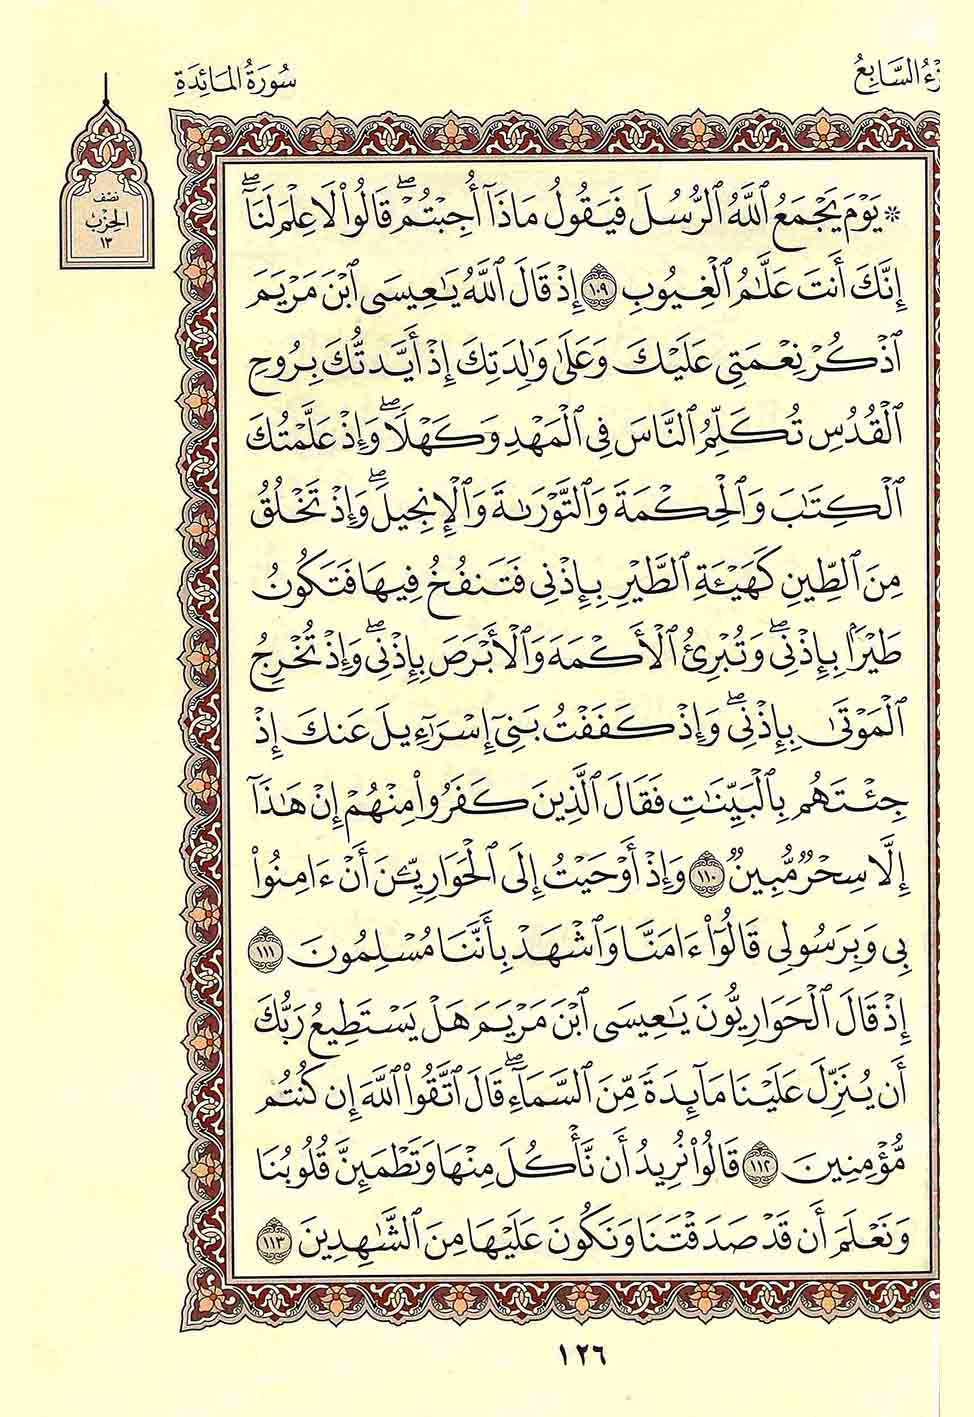 زْءُ السَّابِعُ
سُورَةُ المَائِدَةِ
نصف
الحِزْبُ
١٣
۞ يَوْمَ يَجْمَعُ ٱللَّهُ ٱلرُّسُلَ فَيَقُولُ مَاذَآ أُجِبْتُمْۖ قَالُوا۟ لَا عِلْمَ لَنَآۖ
إِنَّكَ أَنتَ عَلَّٰمُ ٱلْغُيُوبِ ١٠٩ إِذْ قَالَ ٱللَّهُ يَٰعِيسَى ٱبْنَ مَرْيَمَ
ٱذْكُرْ نِعْمَتِى عَلَيْكَ وَعَلَىٰ وَٰلِدَتِكَ إِذْ أَيَّدتُّكَ بِرُوحِ
ٱلْقُدُسِ تُكَلِّمُ ٱلنَّاسَ فِى ٱلْمَهْدِ وَكَهْلًاۖ وَإِذْ عَلَّمْتُكَ
ٱلْكِتَٰبَ وَٱلْحِكْمَةَ وَٱلتَّوْرَىٰةَ وَٱلْإِنجِيلَۖ وَإِذْ تَخْلُقُ
مِنَ ٱلطِّينِ كَهَيْـَٔةِ ٱلطَّيْرِ بِإِذْنِى فَتَنفُخُ فِيهَا فَتَكُونُ
طَيْرًۢا بِإِذْنِىۖ وَتُبْرِئُ ٱلْأَكْمَهَ وَٱلْأَبْرَصَ بِإِذْنِىۖ وَإِذْ تُخْرِجُ
ٱلْمَوْتَىٰ بِإِذْنِىۖ وَإِذْ كَفَفْتُ بَنِىٓ إِسْرَٰٓءِيلَ عَنكَ إِذْ
جِئْتَهُم بِٱلْبَيِّنَٰتِ فَقَالَ ٱلَّذِينَ كَفَرُوا۟ مِنْهُمْ إِنْ هَٰذَآ
إِلَّا سِحْرٌ مُّبِينٌ ١١٠ وَإِذْ أَوْحَيْتُ إِلَى ٱلْحَوَارِيِّـۧنَ أَنْ ءَامِنُوا۟
بِى وَبِرَسُولِى قَالُوٓا۟ ءَامَنَّا وَٱشْهَدْ بِأَنَّنَا مُسْلِمُونَ ١١١
إِذْ قَالَ ٱلْحَوَارِيُّونَ يَٰعِيسَى ٱبْنَ مَرْيَمَ هَلْ يَسْتَطِيعُ رَبُّكَ
أَن يُنَزِّلَ عَلَيْنَا مَآئِدَةً مِّنَ ٱلسَّمَآءِۖ قَالَ ٱتَّقُوا۟ ٱللَّهَ إِن كُنتُم
مُّؤْمِنِينَ ١١٢ قَالُوا۟ نُرِيدُ أَن نَّأْكُلَ مِنْهَا وَتَطْمَئِنَّ قُلُوبُنَا
وَنَعْلَمَ أَن قَدْ صَدَقْتَنَا وَنَكُونَ عَلَيْهَا مِنَ ٱلشَّٰهِدِينَ ١١٣
١٢٦